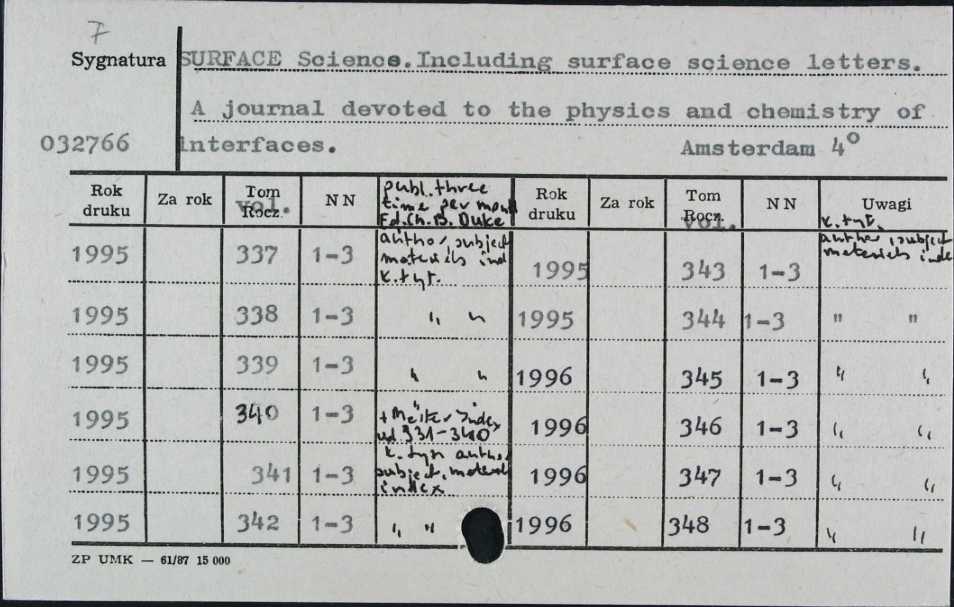 7
Sygnatura SURFACE Science.Including surface science letters.
A journal devoted to the physics and chemistry of
032766 interfaces. Amsterdam 4°
Rok druku Za rok Tom Rocz. vol. NN publ. three time per month Ed. Ch. B. Duke Rok druku Za rok Tom Rocz. vol. NN Uwagi k. tyt.
1995 337 1-3 author, subject materials ind k. tyt. 1995 343 1-3 author, subject materials inde
1995 338 1-3 " " 1995 344 1-3 " "
1995 339 1-3 " " 1996 345 1-3 " "
1995 340 1-3 + Index vol 331-340 1996 346 1-3 " "
1995 341 1-3 k. tyt author subject, material index 1996 347 1-3 " "
1995 342 1-3 " " 1996 348 1-3 " "
ZP UMK — 61/87 15 000